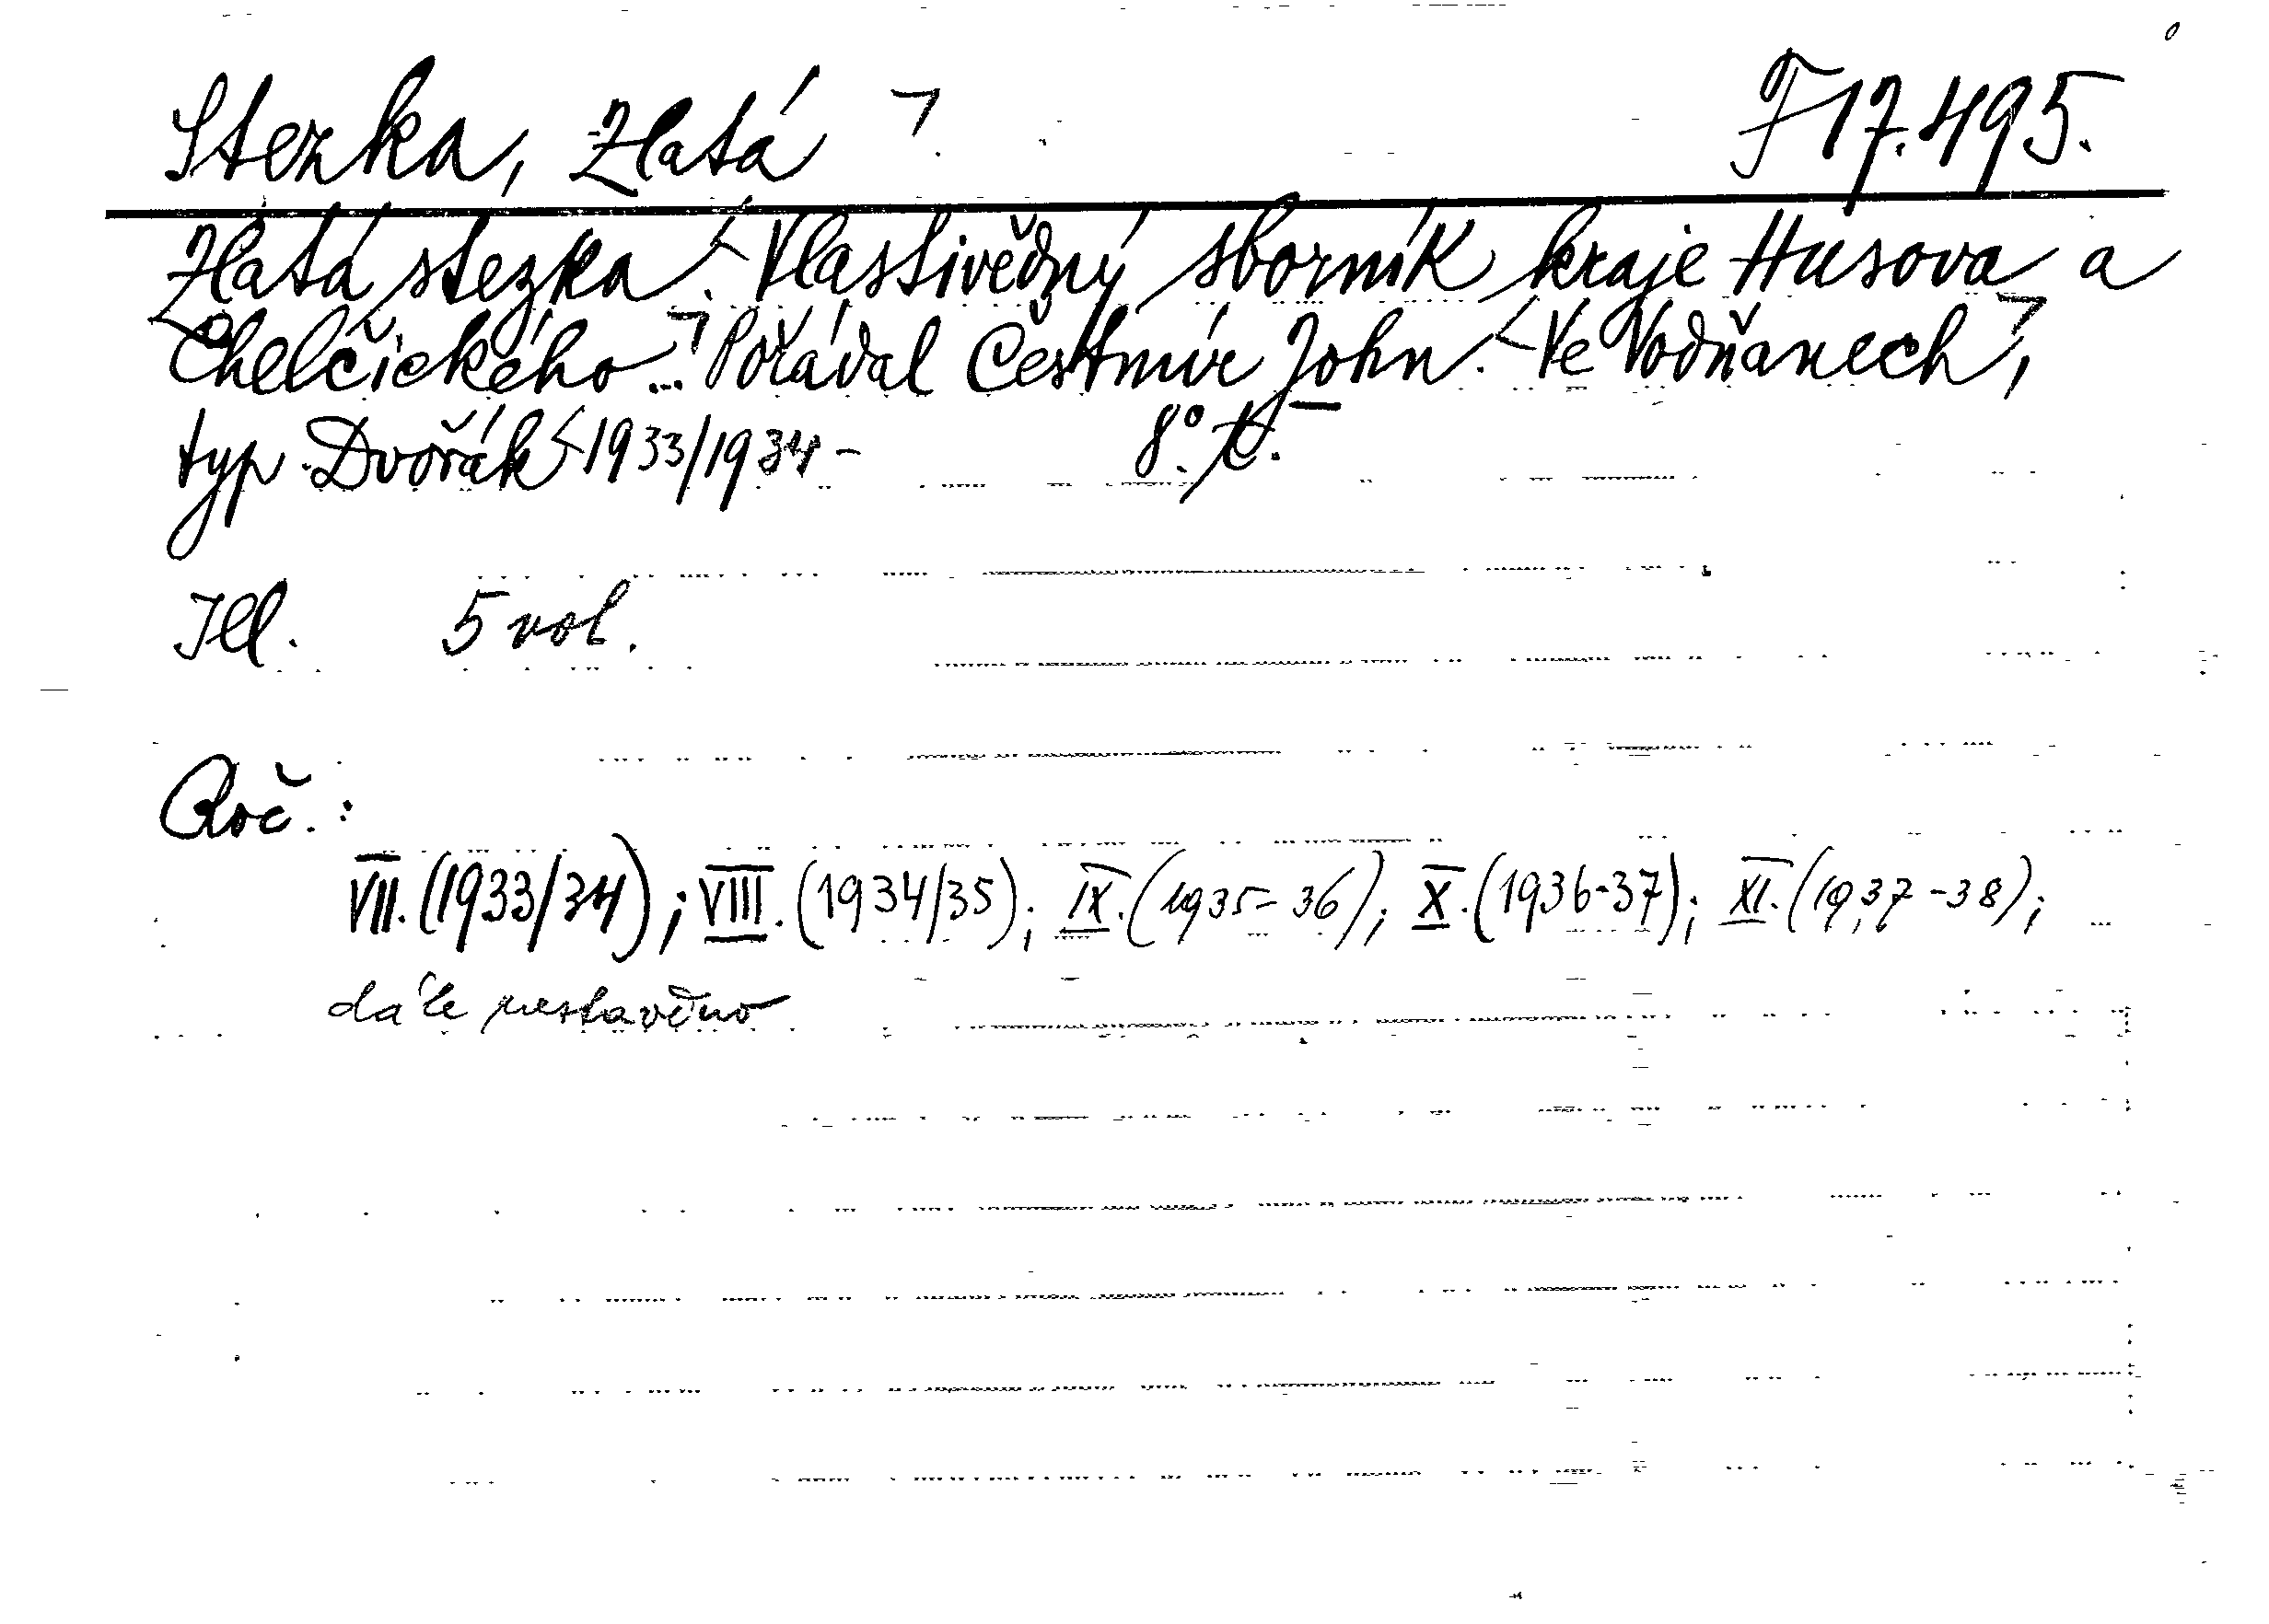 Stezka, Zlatá F 17.495.
Zlatá stezka. Vlastivědný sborník kraje Husova a
Chelčického... Pořádal Čestmír John. - Ve Vodňanech,
typ. Dvořák 1933/1934 - 8°.
Ill. 5 vol.
Roč.:
VII. (1933/34); VIII. (1934/35); IX. (1935-36); X. (1936-37); XI. (1937-38);
dále nestavěno